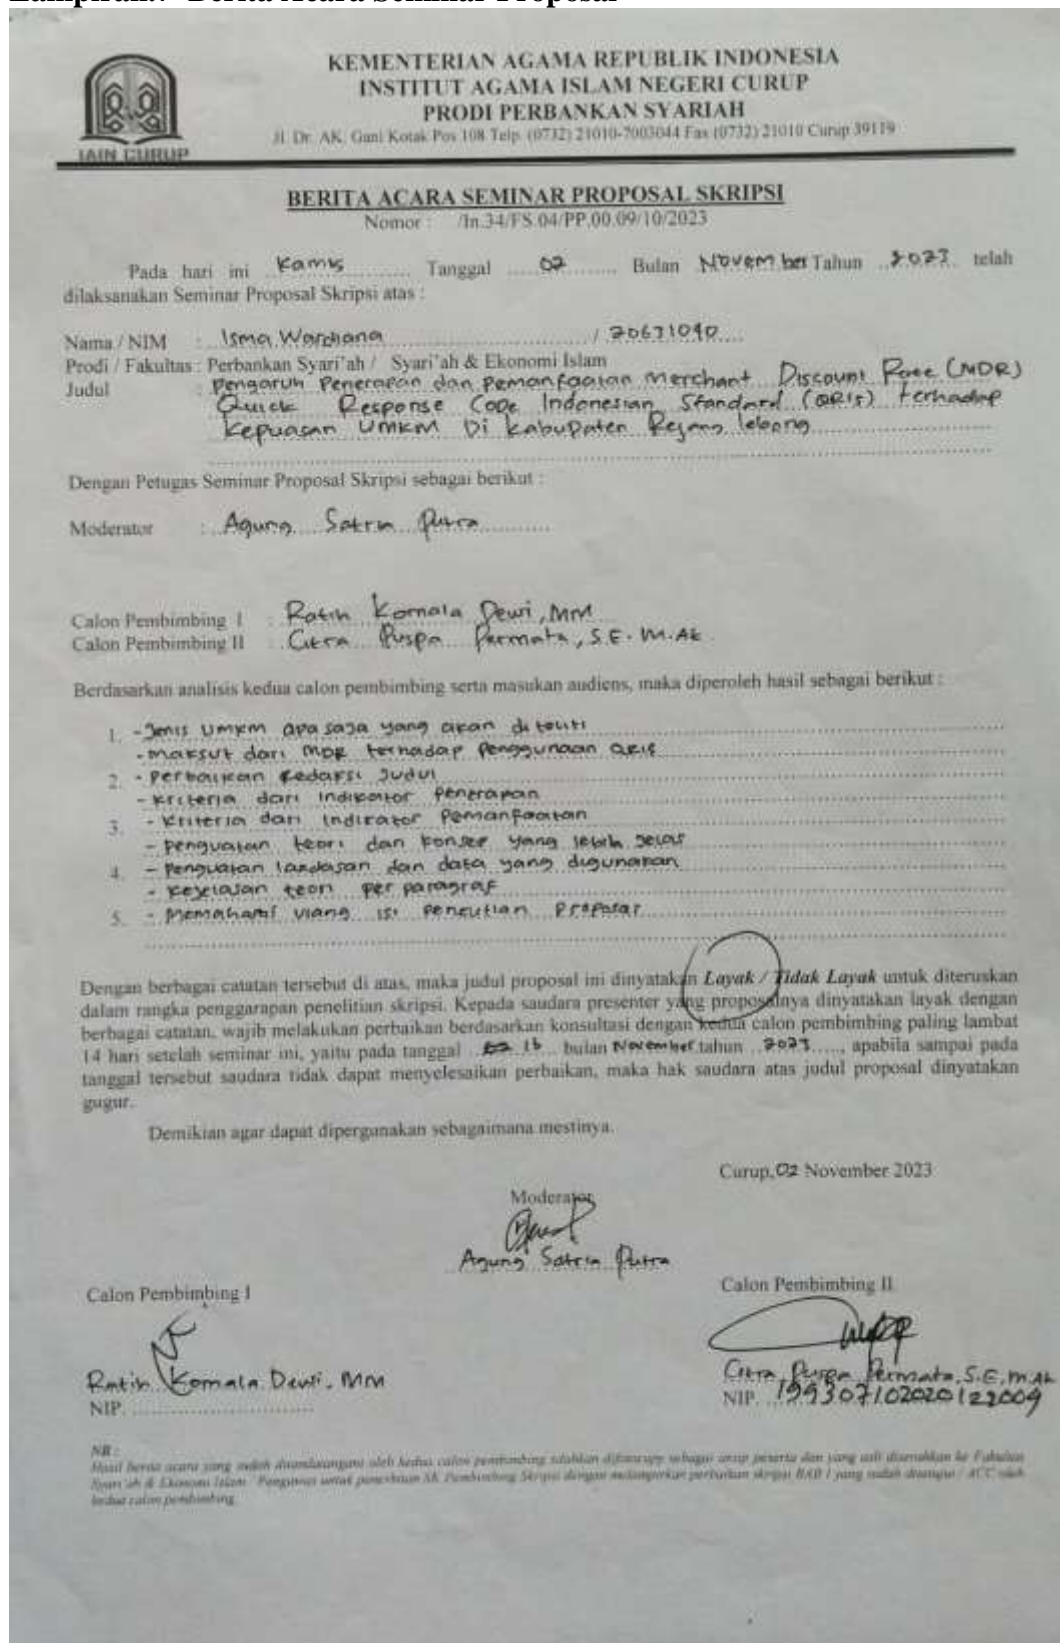 Berita Acara Seminar Proposal
KEMENTERIAN AGAMA REPUBLIK INDONESIA
INSTITUT AGAMA ISLAM NEGERI CURUP
PRODI PERBANKAN SYARIAH
Jl. Dr. AK. Gani Kotak Pos 108 Telp. (0732) 21010-7003044 Fax (0732) 21010 Curup 39119
IAIN CURUP
BERITA ACARA SEMINAR PROPOSAL SKRIPSI
Nomor : /In.34/FS.04/PP.00.09/10/2023
Pada hari ini Kamis Tanggal 02 Bulan November Tahun 2023 telah
dilaksanakan Seminar Proposal Skripsi atas :
Nama / NIM : Isma Wardiana / 20631040
Prodi / Fakultas : Perbankan Syari'ah / Syari'ah & Ekonomi Islam
Judul : Pengaruh Penerapan dan Pemanfaatan Merchant Discount Rate (MDR)
Quick Response Code Indonesian Standard (QRIS) terhadap
Kepuasan UMKM Di Kabupaten Rejang lebong
Dengan Petugas Seminar Proposal Skripsi sebagai berikut :
Moderator : Agung Satria Putra
Calon Pembimbing I : Ratih Komala Dewi, MM
Calon Pembimbing II : Citra Puspa Permata, S.E. M.Ak
Berdasarkan analisis kedua calon pembimbing serta masukan audiens, maka diperoleh hasil sebagai berikut :
1. - Jenis UMKM apa saja yang akan di teliti
- maksut dari MDR terhadap Penggunaan QRIS
2. - Perbaikan Redaksi Judul
- Kriteria dari indikator Penerapan
3. - Kriteria dari indikator Pemanfaatan
- Penguatan teori dan konsep yang lebih jelas
4. - Penguatan landasan dan data yang digunakan
- Kejelasan teori per paragraf
5. - Memahami ulang isi penelitian Proposal
Dengan berbagai catatan tersebut di atas, maka judul proposal ini dinyatakan Layak / Tidak Layak untuk diteruskan
dalam rangka penggarapan penelitian skripsi. Kepada saudara presenter yang proposalnya dinyatakan layak dengan
berbagai catatan, wajib melakukan perbaikan berdasarkan konsultasi dengan kedua calon pembimbing paling lambat
14 hari setelah seminar ini, yaitu pada tanggal 16 bulan November tahun 2023, apabila sampai pada
tanggal tersebut saudara tidak dapat menyelesaikan perbaikan, maka hak saudara atas judul proposal dinyatakan
gugur.
Demikian agar dapat dipergunakan sebagaimana mestinya.
Curup, 02 November 2023
Moderator
Agung Satria Putra
Calon Pembimbing I
Calon Pembimbing II
Ratih Komala Dewi, MM
NIP.
Citra Puspa Permata, S.E, M.Ak
NIP. 199307102020122004
NB :
Hasil berita acara yang sudah ditandatangani oleh kedua calon pembimbing silahkan difotocopy sebagai arsip peserta dan yang asli diserahkan ke Fakultas
Syari'ah & Ekonomi Islam / Pengawas untuk penerbitan SK Pembimbing Skripsi dengan melampirkan perbaikan skripsi BAB I yang sudah disetujui / ACC oleh
kedua calon pembimbing.